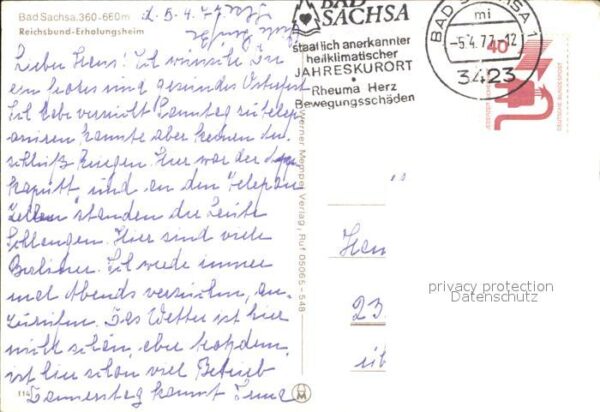 Bad Sachsa, 360-660 m
Reichsbund-Erholungsheim
d. 5.4.77
Lieber Hans! Ich wünsche Dir
ein frohes und gesundes Osterfest
Ich habe versucht Sonntag zu telep
onieren, konnte aber keinen An
schluß kriegen. Hier war der
kaputt und an den Telephon
Zellen standen die Leute
Schlangen. Hier sind viele
Berliner. Ich werde immer
mal Abends versuchen, an-
zurufen. Das Wetter ist hier
nicht schön, aber trotzdem
ist hier schon viel Betrieb
Donnerstag kommt
114
Werner Memper Verlag, Ruf 05065-548
HM
BAD
SACHSA
staatlich anerkannter
heilklimatischer
JAHRESKURORT
Rheuma Herz
Bewegungsschäden
BAD SACHSA 1
mi
-5.4.77-12
3423
40
DEUTSCHE BUNDESPOST
Han
23
üb
privacy protection
Datenschutz